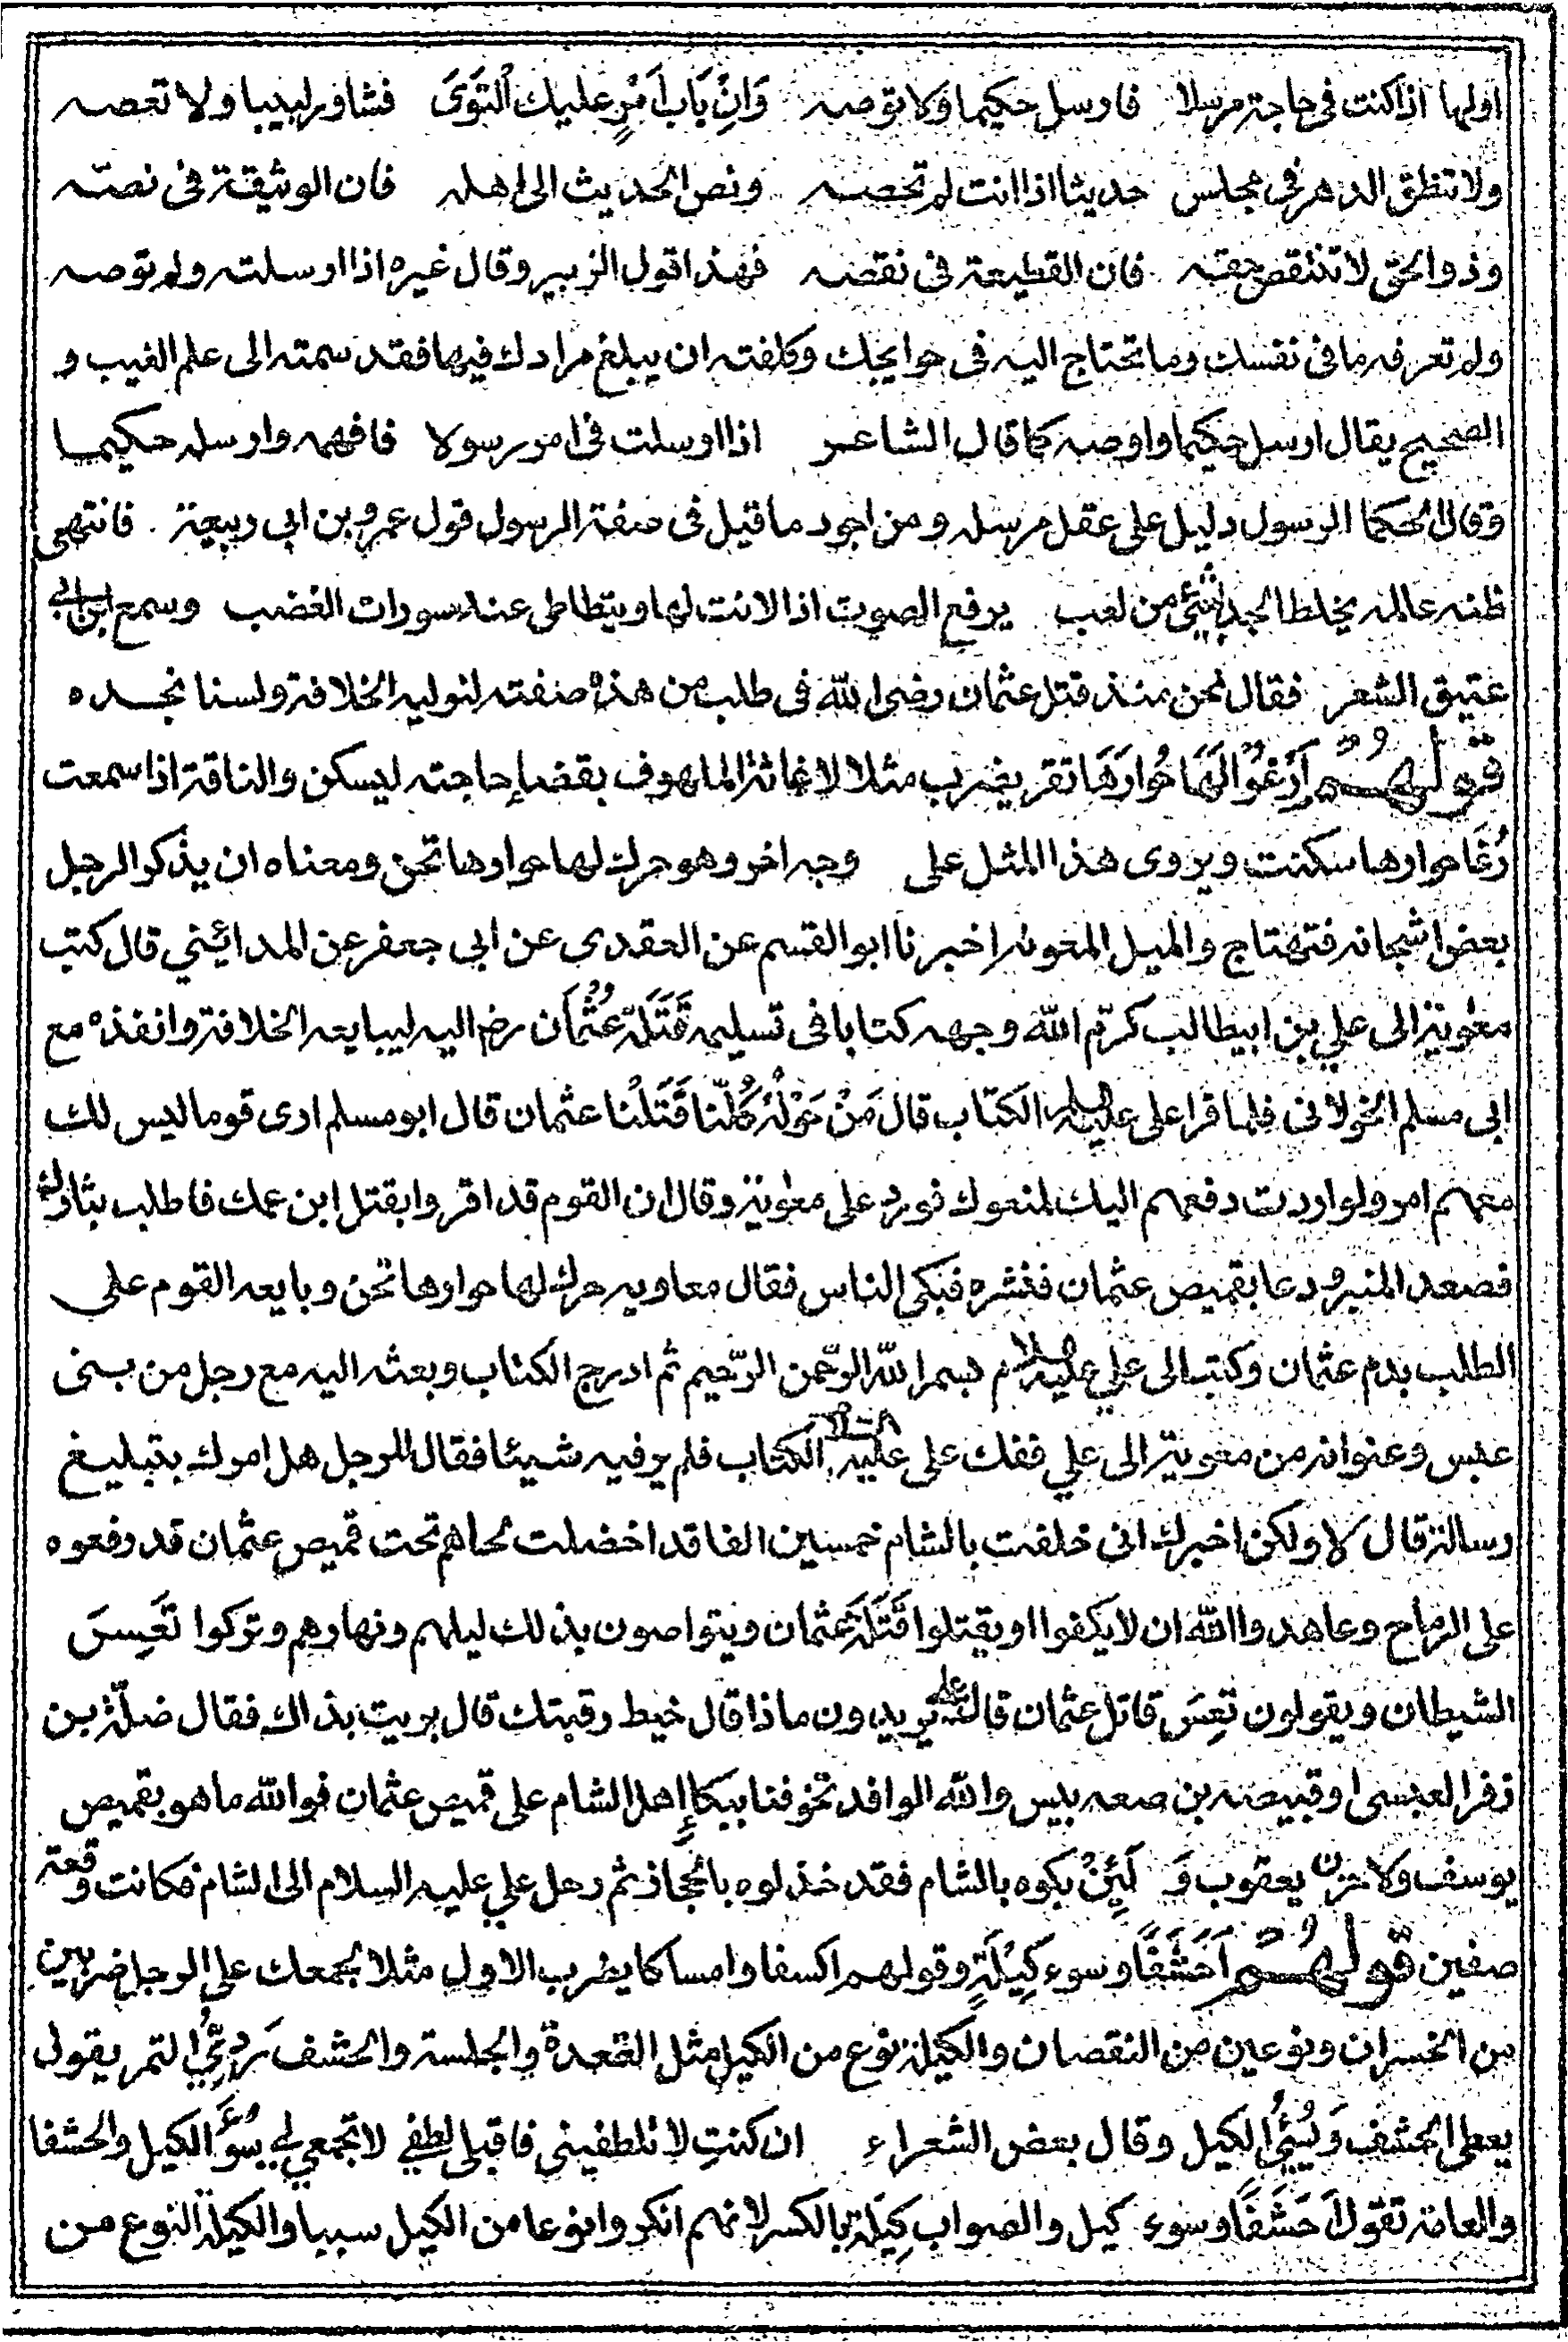 اولها اذا كنت فى حاجة مرسلا فارسل حكيما ولا توصه وَانْ بَاب اَمْرٍ عليك اْلتَوَىَ فشاور لبيبا ولا تعصه
ولا تنطق الدهر فى مجلس حديثا اذا انت لم تحصه ونص الحديث الى اهله فان الوثيقة فى نصّه
وذو الحق لا تنتقص حقه فان القطيعة فى نقصه فهذا قول الزبير وقال غيره اذا ارسلته ولم توصه
ولم تعرفه ما فى نفسك وما تحتاج اليه فى حوايجك وكلفته ان يبلغ مرادك فيها فقد سمته الى علم الغيب و
الصحيح يقال ارسل حكيما واوصه كما قال الشاعر اذا ارسلت فى امر رسولا فافهمه وارسله حكيما
وقال الحكما الرسول دليل على عقل مرسله ومن اجود ما قيل فى صفة الرسول قول عمرو بن ابى ربيعة . فانتهى
ظنه عالمه يخلط الجد بشيئ من لعب يرفع الصوت اذا لانت لها ويتطاطى عند سورات الغضب وسمع ابن ابى
عتيق الشعر فقال نحن منذ قتل عثمان رضى الله فى طلب من هذه صفته لنوليه الخلافة ولسنا نجده
قولهُمْ اَرْغُوْا لَهَا حُوارَهَا تقر يضرب مثلا لاغاثة الملهوف بقضاء حاجته ليسكن والناقة اذا سمعت
رُغَا حوارها سكنت ويروى هذا المثل على وجه اخر وهو حرك لها حوارها تحن ومعناه ان يذكر الرجل
بعض اشجانه فتهتاج والميل المعونه اخبرنا ابو القسم عن العقدى عن ابى جعفر عن المدائيني قال كتب
معٰوية الى علي بن ابيطالب كرّم الله وجهه كتابا فى تسليمه قَتَلَة عُثْمَان رضه اليه ليبايعه الخلافة وانفذه مع
ابى مسلم الخولانى فلما قرا على عليه السلم الكتاب قال مَنْ حَوْلَهُ كُلّنا قَتَلْنا عثمان قال ابو مسلم ارى قوما ليس لك
معهم امر ولو اردت دفعهم اليك لمنعوك فورد على معٰوية وقال ان القوم قد اقروا بقتل ابن عمك فاطلب بثارك
فصعد المنبر ودعا بقميص عثمان فنشره فبكى الناس فقال معاويه حرك لها حوارها تحن وبايعه القوم على
الطلب بدم عثمان وكتب الى علي عليه السلام بسم الله الرّحمن الرّحيم ثم ادرج الكتاب وبعثه اليه مع رجل من بنى
عبس وعنوانه من معوية الى علي ففك على عليه السلام الكتاب فلم ير فيه شيئا فقال للرجل هل امرك بتبليغ
رسالة قال لا ولكن اخبرك انى خلفت بالشام خمسين الفا قد اخضلت لحاهم تحت قميص عثمان قد رفعوه
على الرماح وعاهدوا الله ان لا يكفوا او يقتلوا قَتَلَةَ عثمان ويتواصون بذلك ليلهم ونهارهم وتركوا تَعَِسَ
الشيطان ويقولون تَعِسَ قاتل عثمان قال على تريدون ماذا قال خيط رقبتك قال بريت بذاك فقال ضلّة بن
زفر العبسى او قبيصة بن صعه بيس والله الوافد تخوفنا ببكاء اهل الشام على قميص عثمان فوالله ما هو بقميص
يوسف ولا حزن يعقوب وَ لَئِنْ بكوه بالشام فقد خذلوه بالحجاز ثم رحل علي عليه السلام الى الشام فكانت وقعة
صفين قولهُمْ اَحَشَفًا وسوء كِيْلَةٍ وقولهم اكسفا وامساكا يضرب الاول مثلا لجمعك على الرجل ضربين
من الخسران ونوعين من النقصان والكيلة نوع من الكيل مثل القعدة والجلسة والحشف رَدِيُّ التمر يقول
يعطى الحشف وَيُسْيُ الكيل وقال بعض الشعراء ان كنتِ لا تلطفيني فاقبلى لطفي لا تجمعي لي سُوَْءَ الكيل والحشفا
والعامة تقول اَحَشَفًا وسوء كيل والصواب كِيْلَة بالكسر لانهم انكروا نوعا من الكيل سببا والكيلة النوع من